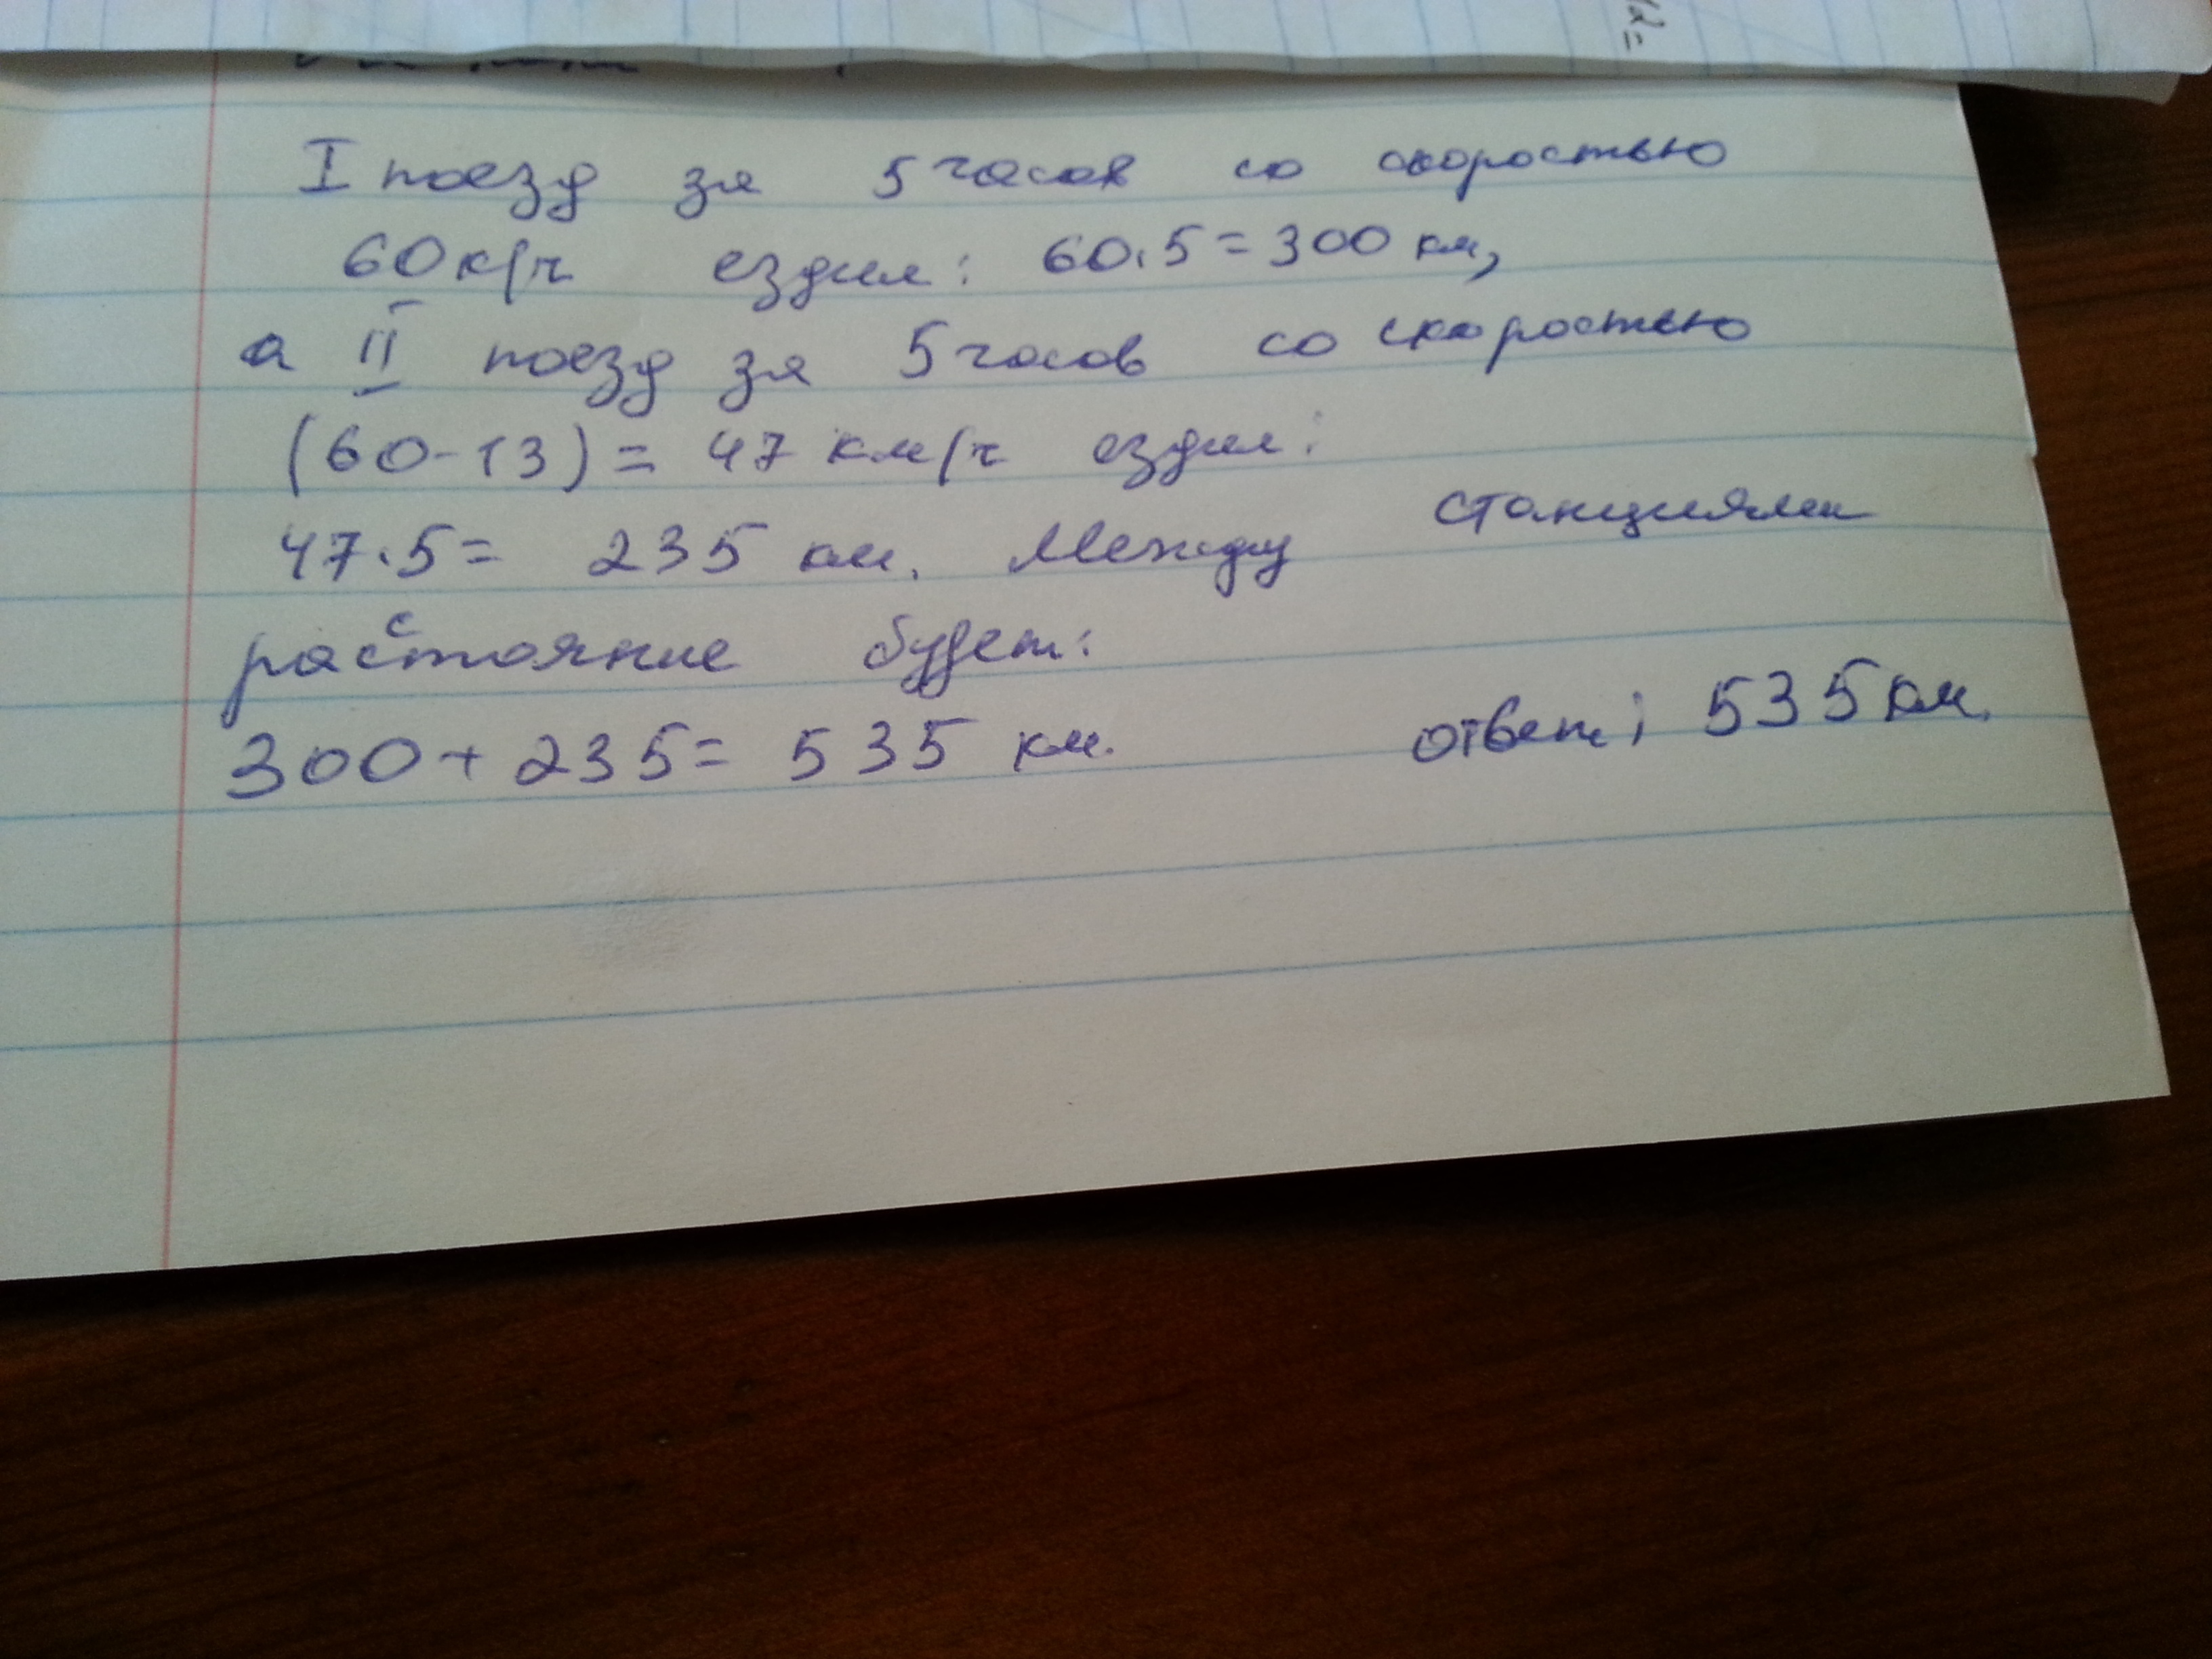 12=
I поезд за 5 часов со скоростью
60 к/ч ездил: 60·5=300 км,
а II поезд за 5 часов со скоростью
(60-13)= 47 км/ч ездил:
47·5= 235 км. Между станциями
расстояние будет:
300+235= 535 км. ответ: 535 км.